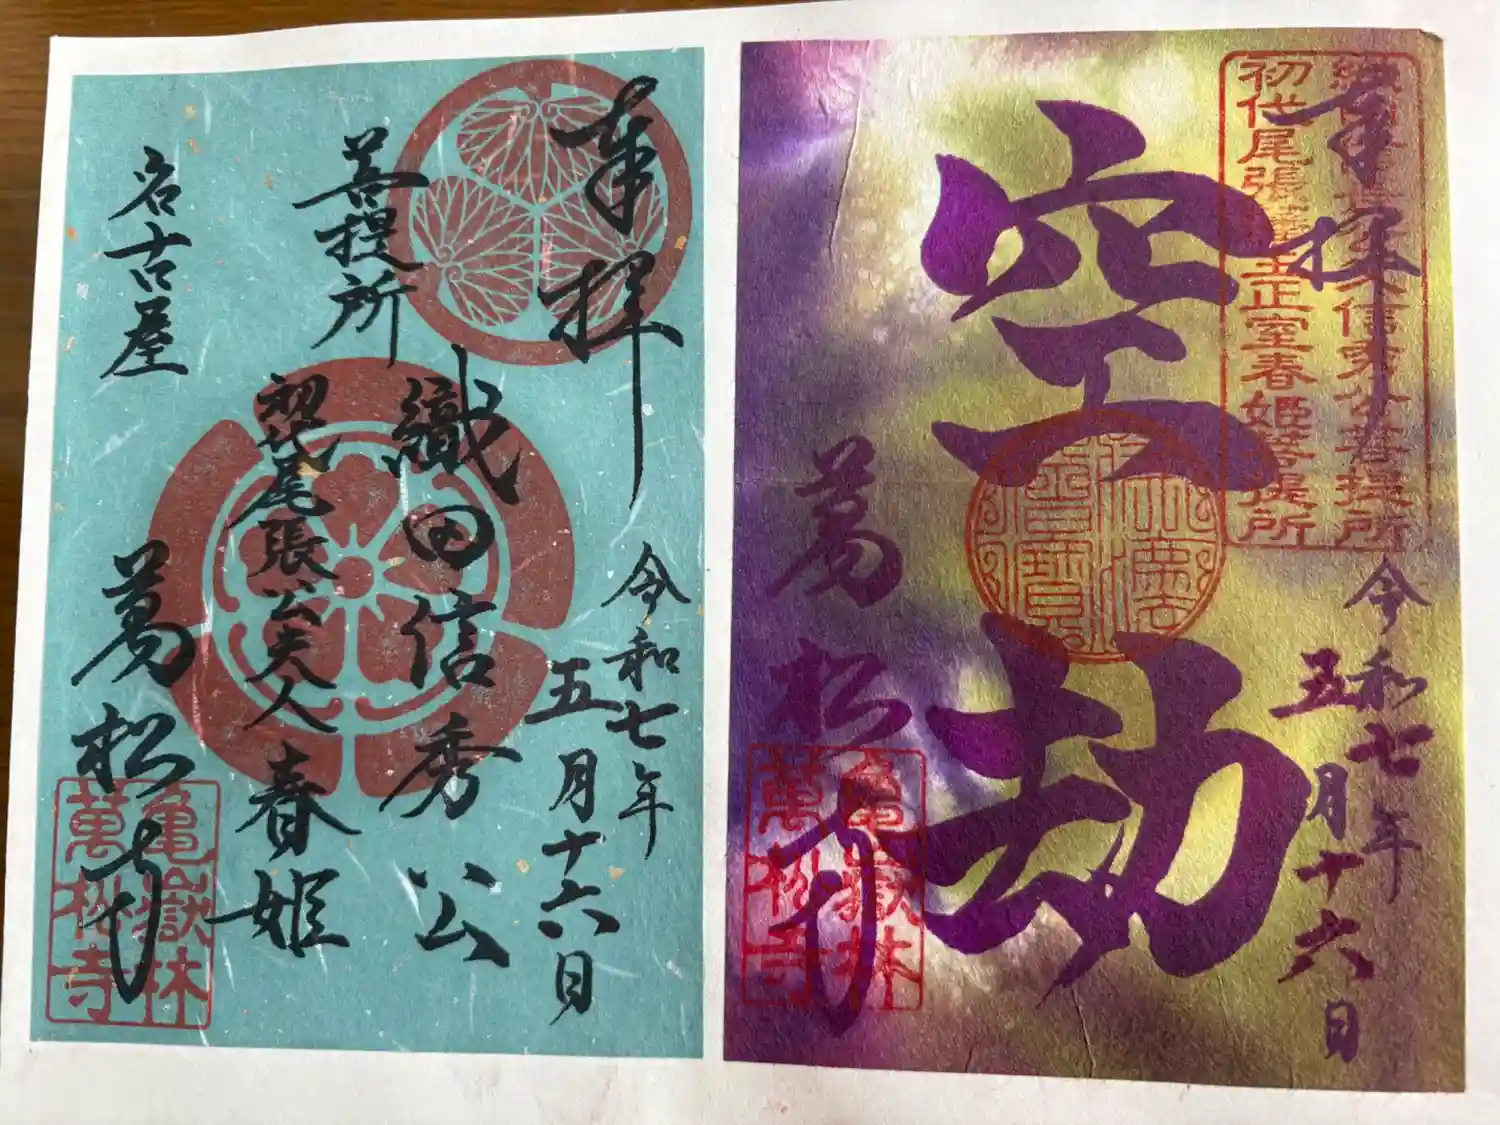 奉拝
令和七年
五月十六日
織田信秀公
初代尾張公夫人春姫
菩提所
名古屋
萬松寺
亀嶽林
萬松寺
奉拝
令和七年
五月十六日
信秀公菩提所
初代尾張
正室春姫菩提所
空劫
萬松寺
亀嶽林
萬松寺